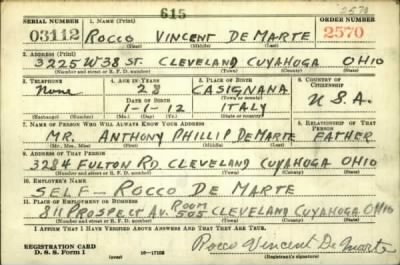 615
2570
SERIAL NUMBER 1. NAME (Print) ORDER NUMBER
03112 ROCCO VINCENT DEMARTE 2570
(First) (Middle) (Last)
2. ADDRESS (Print)
3225 W 38 ST. CLEVELAND CUYAHOGA OHIO
(Number and street or R. F. D. number) (Town) (County) (State)
3. TELEPHONE 4. AGE IN YEARS 5. PLACE OF BIRTH 6. COUNTRY OF CITIZENSHIP
None 28 CASIGNANA U.S.A.
DATE OF BIRTH (Town or county)
1-1-12 ITALY
(Mo.) (Day) (Yr.) (State or country)
7. NAME OF PERSON WHO WILL ALWAYS KNOW YOUR ADDRESS 8. RELATIONSHIP OF THAT PERSON
MR. ANTHONY PHILLIP DEMARTE FATHER
(Mr., Mrs., Miss) (First) (Middle) (Last)
9. ADDRESS OF THAT PERSON
3284 FULTON RD. CLEVELAND CUYAHOGA OHIO
(Number and street or R. F. D. number) (Town) (County) (State)
10. EMPLOYER'S NAME
SELF - ROCCO DE MARTE
11. PLACE OF EMPLOYMENT OR BUSINESS
811 PROSPECT AV. ROOM 505 CLEVELAND CUYAHOGA OHIO
(Number and street or R. F. D. number) (Town) (County) (State)
I AFFIRM THAT I HAVE VERIFIED ABOVE ANSWERS AND THAT THEY ARE TRUE.
REGISTRATION CARD
D. S. S. Form 1 (over) Rocco Vincent De Marte
(Registrant's signature)